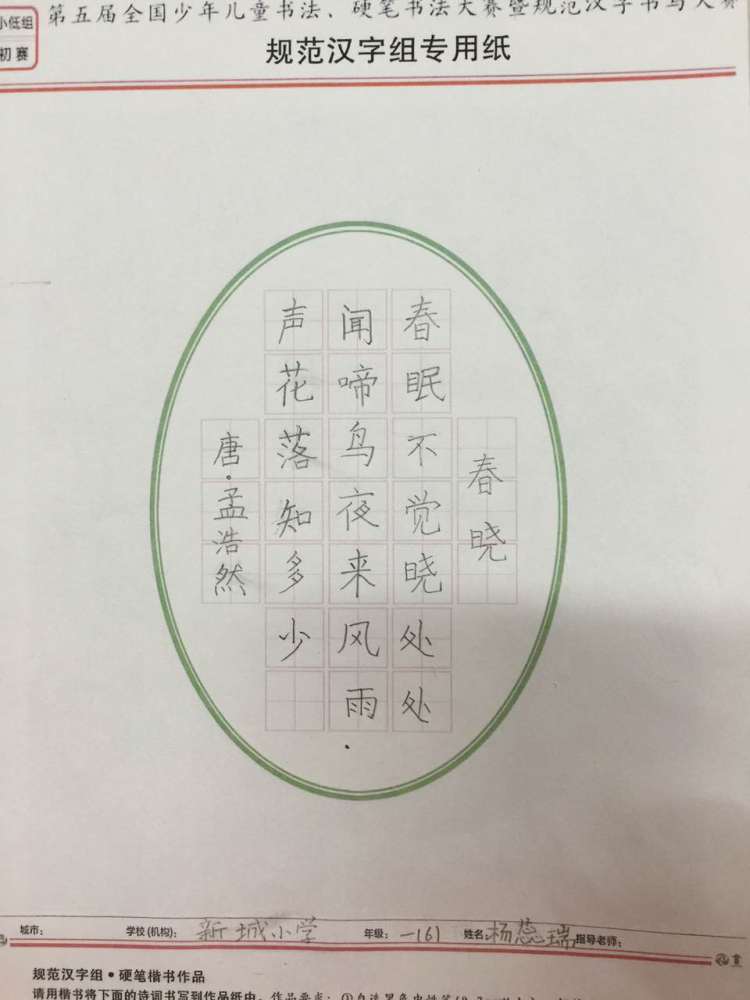 小低组
初赛
第五届全国少年儿童书法、硬笔书法大赛暨规范汉字书写大赛
规范汉字组专用纸
春晓
春眠不觉晓处处
闻啼鸟夜来风雨
声花落知多少
唐·孟浩然
城市： 学校(机构)：新城小学 年级：一(6) 姓名：杨蕊瑞 指导老师：
规范汉字组·硬笔楷书作品
请用楷书将下面的诗词书写到作品纸中。作品要求：①自选黑色中性笔